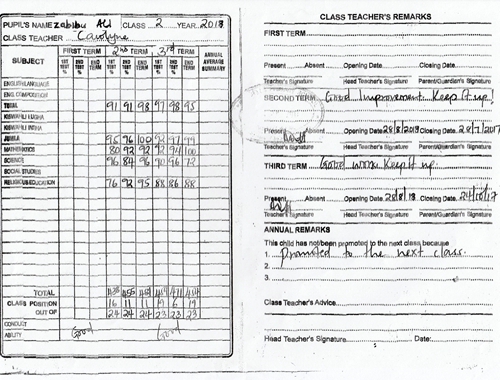 PUPIL'S NAME Zabibu Ali CLASS 2 YEAR 2018
CLASS TEACHER Carolyne
SUBJECT FIRST TERM 2nd TERM, 3rd TERM ANNUAL AVERAGE SUMMARY
1ST TEST % END TERM % 1ST TEST % END TERM % 1ST TEST % END TERM %
ENGLISH LANGUAGE
ENG. COMPOSITION
TOTAL 91 91 98 97 98 95
KISWAHILI LUGHA
KISWAHILI INSHA
JUMLA 95 96 100 92 97 99
MATHEMATICS 80 92 92 92 94 100
SCIENCE 96 84 96 90 96 72
SOCIAL STUDIES
RELIGIOUS EDUCATION 76 92 95 88 86 88
TOTAL
CLASS POSITION 16 11 11 9 6 19
OUT OF 24 24 24 23 23 23
CONDUCT
ABILITY Good Good
CLASS TEACHER'S REMARKS
FIRST TERM
Present Absent Opening Date Closing Date
Teacher's Signature Head Teacher's Signature Parent/Guardian's Signature
SECOND TERM Good Improvement. Keep it up!
Present Absent Opening Date Closing Date
Teacher's Signature Head Teacher's Signature Parent/Guardian's Signature
THIRD TERM Good work. Keep it up.
Present Absent Opening Date Closing Date
Teacher's Signature Head Teacher's Signature Parent/Guardian's Signature
ANNUAL REMARKS
This child has not/been promoted to the next class because
1. Promoted to the next class.
2.
3.
Class Teacher's Advice
Head Teacher's Signature Date: